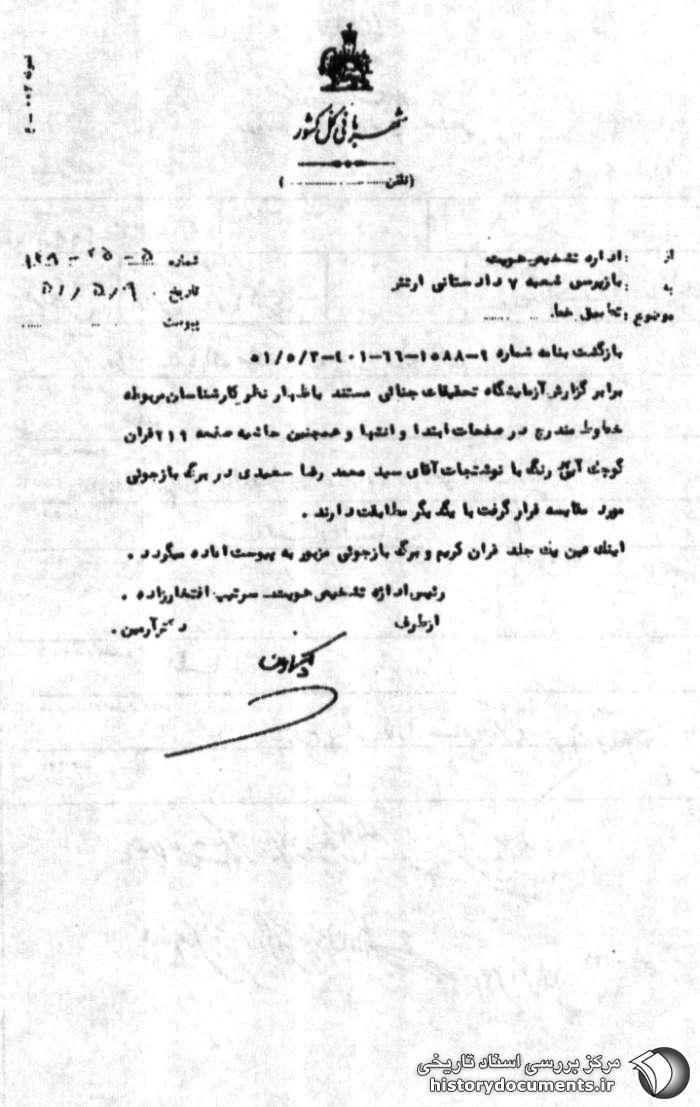 شهربانی کل کشور
(تلفن ............)
از : اداره تشخیص هویت
به : بازپرسی شعبه ۷ دادستانی ارتش
موضوع : تطبیق خط
شماره
تاریخ ۵۱/۵/۹
پیوست
بازگشت بنامه شماره ۵۱/۵/۲-۴۰۱-۶۶-۱۵۸۸-۹
برابر گزارش آزمایشگاه تحقیقات جنائی مستند باظهار نظر کارشناسان مربوطه
خطوط مندرج در صفحات ابتدا و انتها و همچنین حاشیه صفحه ۲۱۹ قران
کوچک آبی رنگ با نوشتجات آقای سید محمد رضا سعیدی در برگ بازجوئی
مورد مقایسه قرار گرفت با یکدیگر مطابقت دارند .
اینک عین یک جلد قران کریم و برگ بازجوئی مزبور به پیوست اعاده میگردد .
رئیس اداره تشخیص هویت. سرتیپ افتخارزاده .
ازطرف دکتر آرمین .
مرکز بررسی اسناد تاریخی
historydocuments.ir